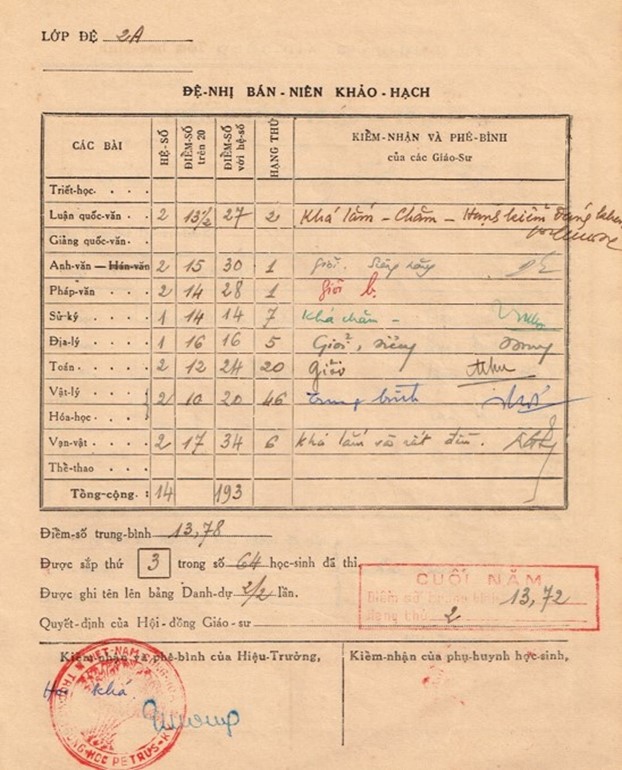 LỚP ĐỆ 2A
ĐỆ-NHỊ BÁN-NIÊN KHẢO-HẠCH
CÁC BÀI HỆ-SỐ ĐIỂM-SỐ trên 20 ĐIỂM-SỐ với hệ-số HẠNG THỨ KIỂM-NHẬN VÀ PHÊ-BÌNH của các Giáo-Sư
Triết-học
Luận quốc-văn 2 13½ 27 2 Khá lắm - Chăm - Hạnh kiểm đáng khen
Giảng quốc-văn
Anh-văn — Hán-văn 2 15 30 1 giỏi. Siêng năng
Pháp-văn 2 14 28 1 giỏi
Sử-ký 1 14 14 7 Khá chăm -
Địa-lý 1 16 16 5 Giỏi, siêng
Toán 2 12 24 20 giỏi
Vật-lý 2 10 20 46 trung bình
Hóa-học
Vạn-vật 2 17 34 6 Khá lắm và rất đều.
Thể-thao
Tổng-cộng : 14 193
Điểm-số trung-bình 13,78
Được sắp thứ 3 trong số 64 học-sinh đã thi
Được ghi tên lên bảng Danh-dự 2/2 lần.
Quyết-định của Hội-đồng Giáo-sư
CUỐI NĂM
Điểm số trung bình 13,72
Hạng thứ 2
Kiểm nhận và phê-bình của Hiệu-Trưởng,
Kiểm-nhận của phụ-huynh học-sinh,
khá
VIỆT-NAM
TRUNG-HỌC PETRUS-K